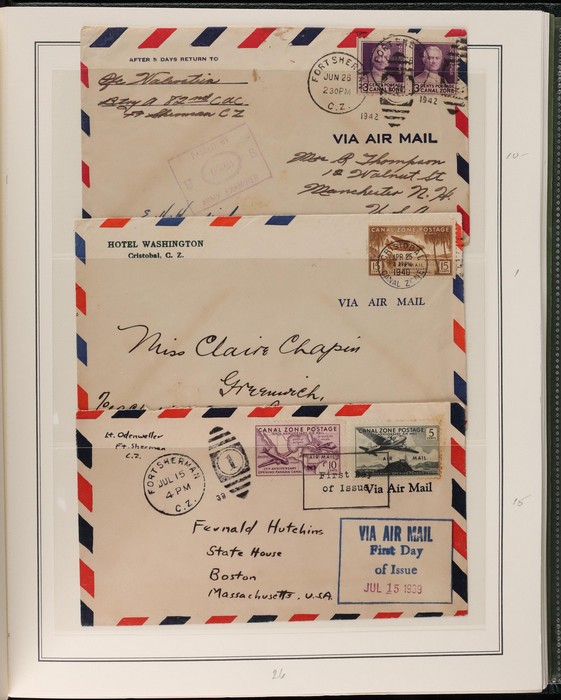 AFTER 5 DAYS RETURN TO
Btry A 82nd CAC
Ft Sherman CZ
FORT SHERMAN
JUN 26
2 30 PM
1942
C. Z.
1942
3 CENTS POSTAGE
CANAL ZONE
3 CENTS POSTAGE
CANAL ZONE
VIA AIR MAIL
U S
R Thompson
18 Walnut St
Manchester N. H.
U.S.A.
HOTEL WASHINGTON
Cristobal, C. Z.
CANAL ZONE POSTAGE
15 15
CRISTOBAL
APR 25
1940
CANAL ZONE
VIA AIR MAIL
Miss Claire Chapin
Greenwich,
Lt. Odenweller
Ft. Sherman
C.Z.
FORT SHERMAN
JUL 15
4 PM
C.Z.
1
39
CANAL ZONE POSTAGE
AIR MAIL
10
CANAL ZONE POSTAGE
5
AIR MAIL
First Day
of Issue
Via Air Mail
Fernald Hutchins
State House
Boston
Massachusetts. U.S.A.
VIA AIR MAIL
First Day
of Issue
JUL 15 1939
10-
1
15
26